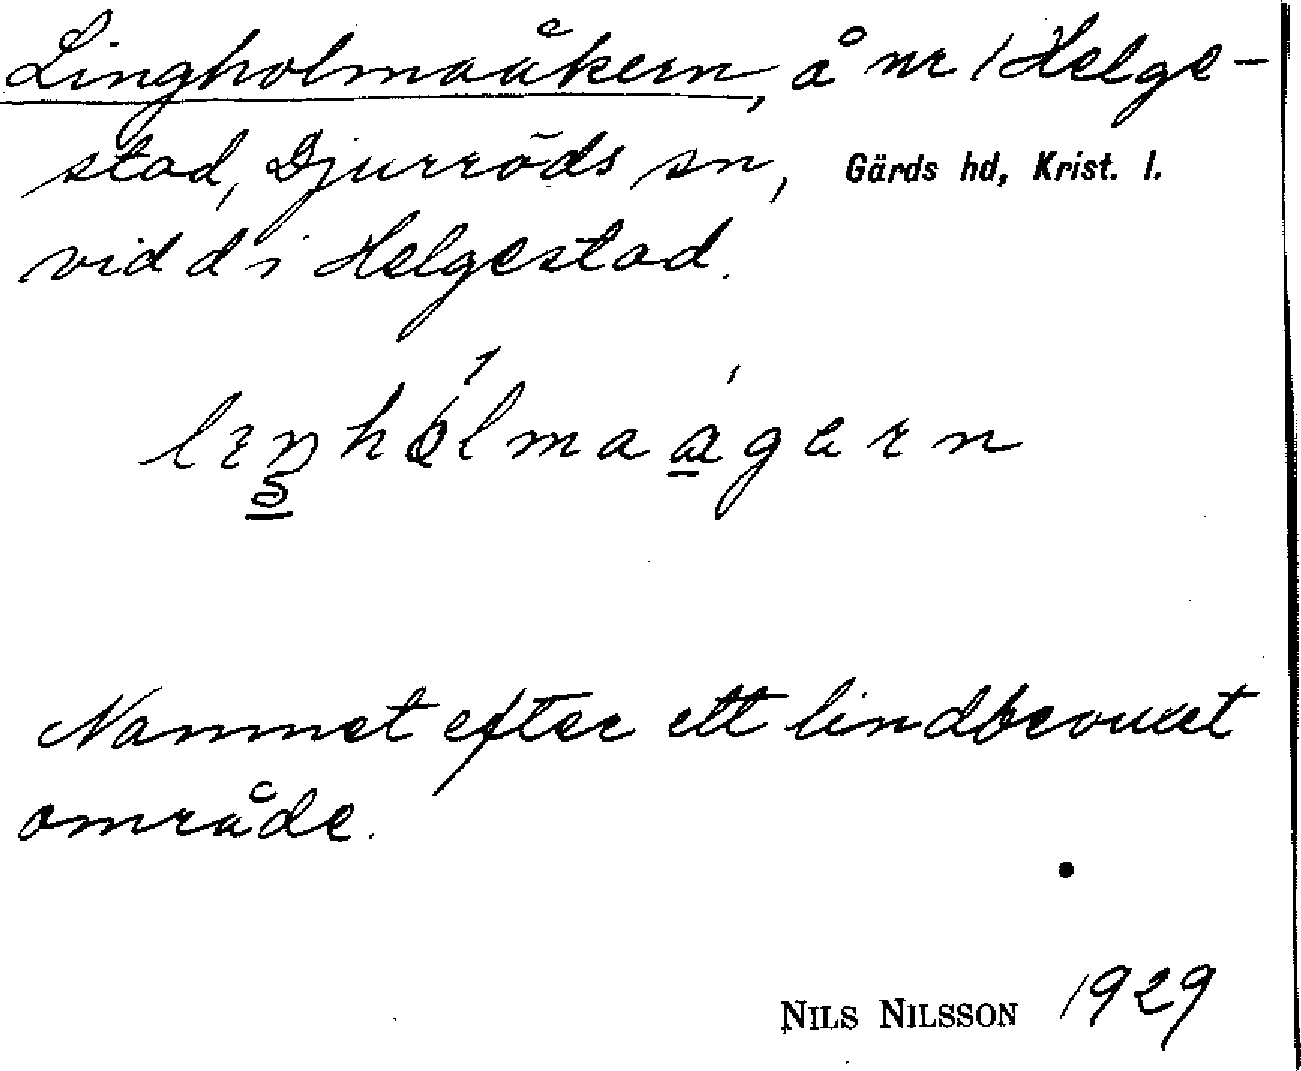 Lingholmaåkern, å nr 1 Helge-
stad, Djurröds sn, Gärds hd, Krist. l.
vid d i Helgestad.
Namnet efter ett lindbevuxet
område.
NILS NILSSON 1929